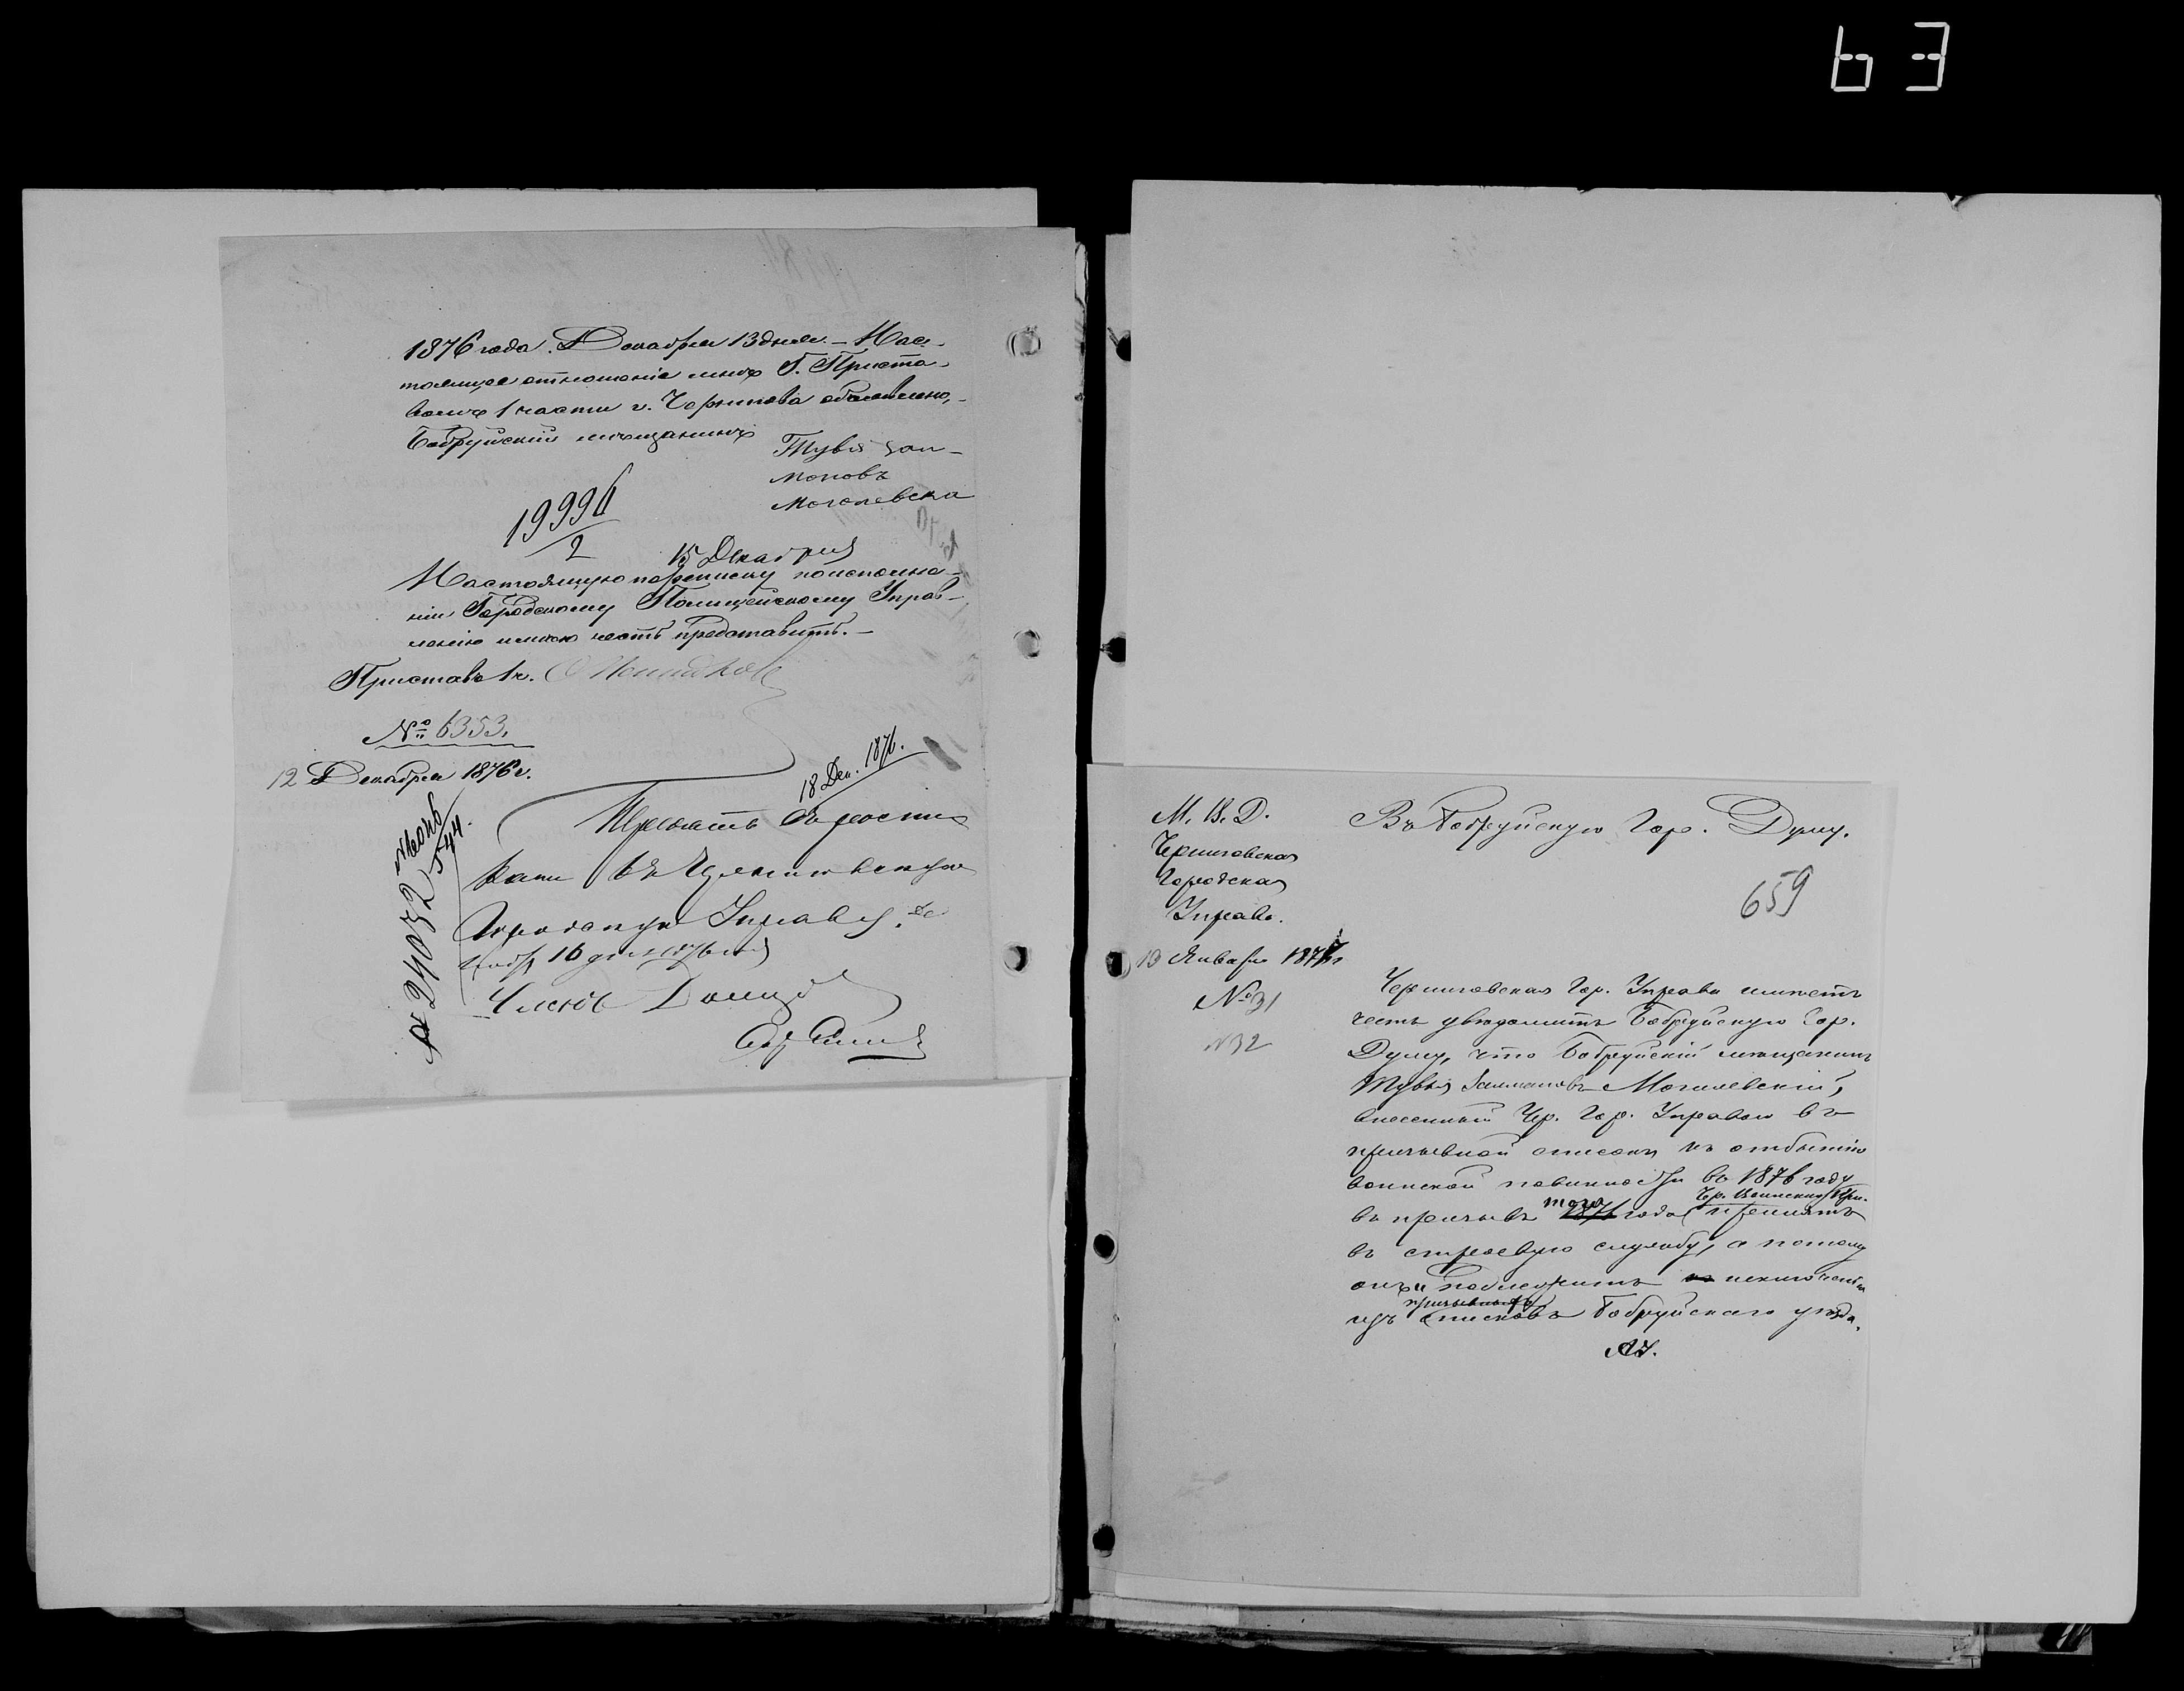 63
1876 года. Декабря 13 дня. – Нас-
тоящее отношеніе мнѣ Г. Приста-
вомъ 1 части г. Чернигова объявлено,
Бобруйскій мѣщанинъ
Тувія Зал-
моновъ
Моголевски
19996
2
15 Декабря
Настоящую переписку по исполне-
ніи Городскому Полицейскому Управ-
ленію имѣю честь представить. –
Приставъ 1 ч.
№ 6353.
12 Декабря 1876 г.
18 Дек. 1876.
въ Черниговскую
Городскую Управу.
16 1876 года
Членъ
№ 24032
544.
М. В. Д.
Черниговская
Городская
Управа.
13 Января 1877 г
№ 31
№ 32
Въ Бобруйскую Гор. Думу.
659
Черниговская Гор. Управа имѣетъ
честь увѣдомить Бобруйскую Гор.
Думу, что Бобруйскій мѣщанинъ
Тувья Залмановъ Могилевскій,
внесенный Чер. Гор. Управою въ
призывной списокъ къ отбытію
воинской повинности въ 1876 году
Чер. Воинским При.
въ призывъ того 1876 года принятъ
въ строевую службу, а потому
онъ и подлежитъ исключенію
призывныхъ
изъ списковъ Бобруйскаго уѣзда.